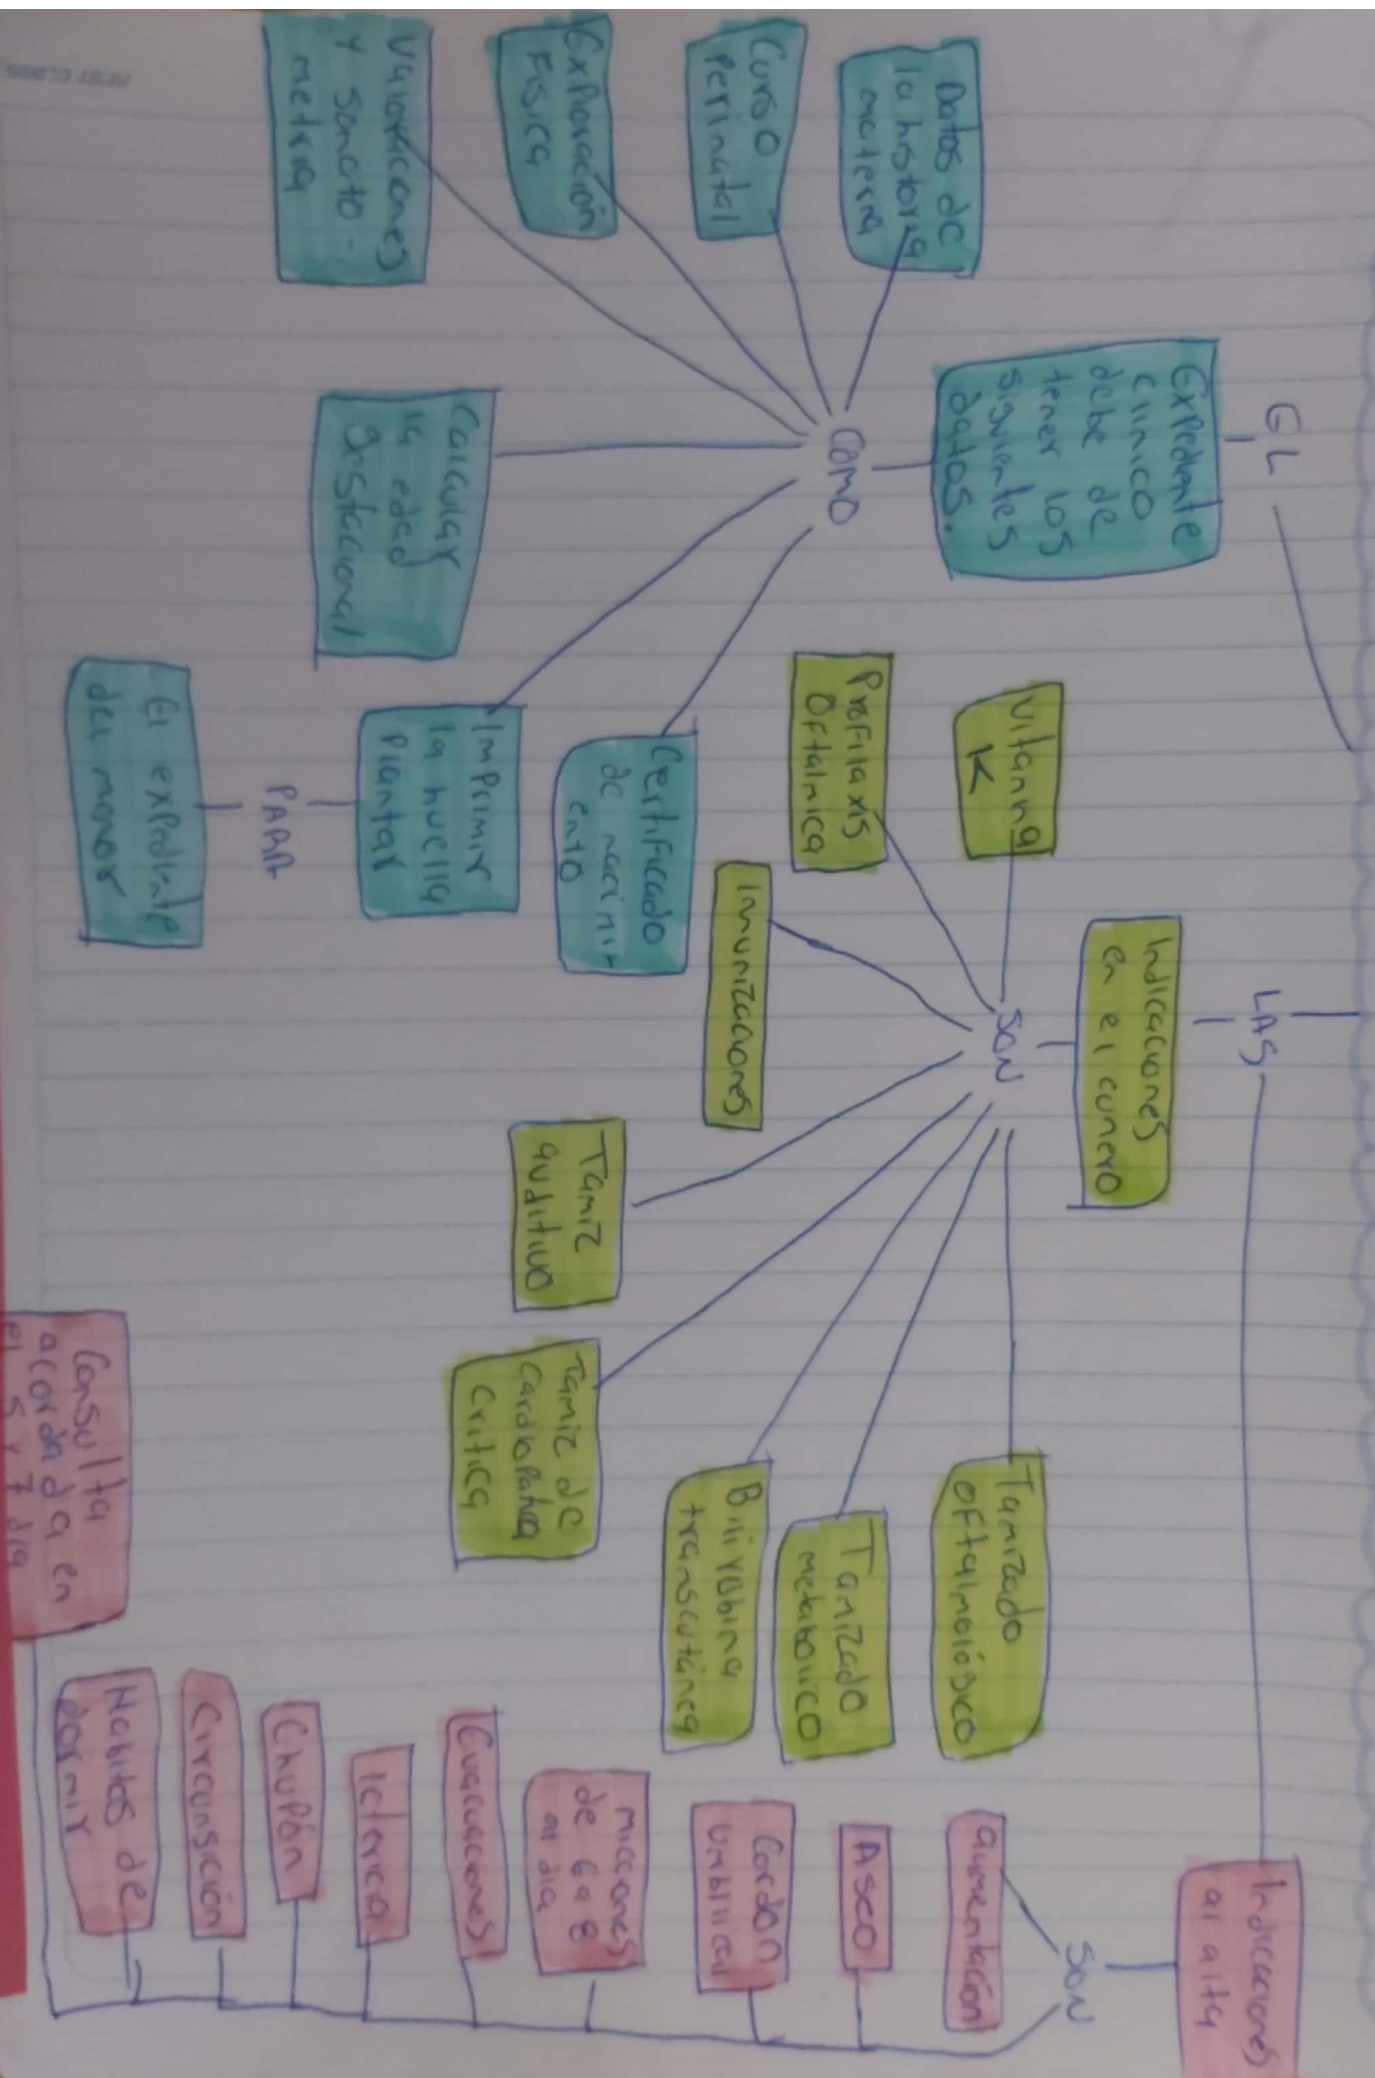 EL
Expediente
clinico
debe de
tener los
siguientes
datos.
COMO
Datos de
la historia
materna
Curso
Perinatal
Exploración
Fisica
Valoraciones
y somato-
metria
Calcular
la edad
gestacional
Imprimir
la huella
Plantar
PARA
El expediente
del menor
Certificado
de nacimi-
ento
LAS
Indicaciones
en el cunero
SON
Vitamina
K
Profilaxis
Oftalmica
Inmunizaciones
Tamiz
auditivo
Tamiz de
Cardiopatia
Critica
Bilirrubina
transcutánea
Tamizado
metabolico
Tamizado
oftalmológico
Indicaciones
al alta
SON
alimentación
Aseo
Cordon
Umbilical
micciones
de 6 a 8
al dia
Evacuaciones
Ictericia
Chupón
Circunsición
Habitos de
dormir
Consulta
acordada en
el 5 y 7 dia